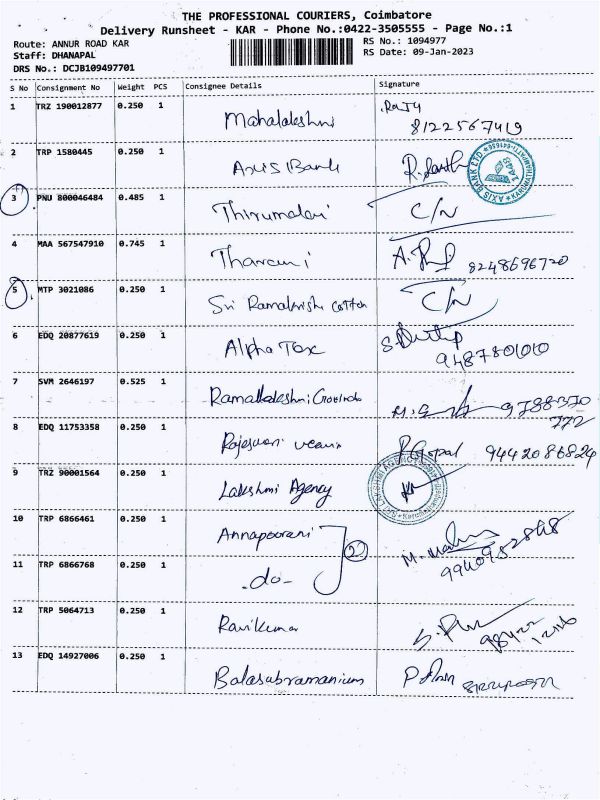 THE PROFESSIONAL COURIERS, Coimbatore
Delivery Runsheet - KAR - Phone No.:0422-3505555 - Page No.:1
Route: ANNUR ROAD KAR
RS No.: 1094977
Staff: DHANAPAL
RS Date: 09-Jan-2023
DRS No.: DCJB109497701
S No Consignment No Weight PCS Consignee Details Signature
1 TRZ 190012877 0.250 1 Mahalakshmi Raj4
8122567419
2 TRP 1580445 0.250 1 Axis Bank
AXIS BANK LTD
3 PNU 800046484 0.485 1 Thirumalai C/N
4 MAA 567547910 0.745 1 Tharani A. 8248696720
5 MTP 3021086 0.250 1 Sri Ramakrish cotton C/N
6 EDQ 20877619 0.250 1 Alpha Tex
9487801010
7 SVM 2646197 0.525 1 Ramalakshmi Govinda
9788370
772
8 EDQ 11753358 0.250 1 Rajeswari P Gopal 9442086824
9 TRZ 90001564 0.250 1 Lakshmi Agency
10 TRP 6866461 0.250 1 Annapoorani M.
2
11 TRP 6866768 0.250 1 -do-
12 TRP 5064713 0.250 1 Ravikumar
13 EDQ 14927006 0.250 1 Balasubramanium